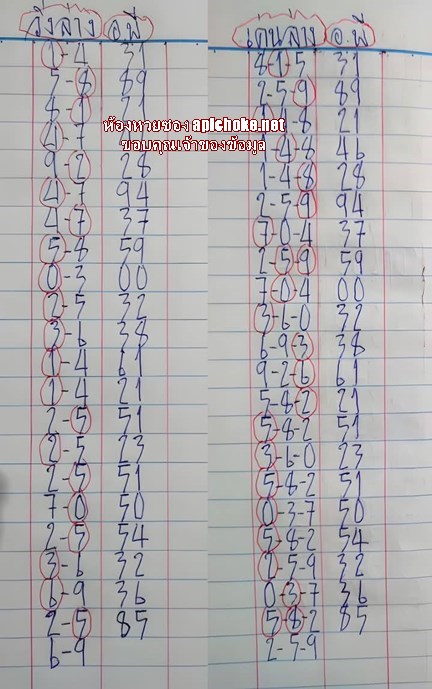 วิ่งล่าง อ.พี
1-4 31
5-8 89
8-1 21
4-7
9-2 28
4-7 94
4-7 37
5-8 59
0-3 00
2-5 32
3-6 38
1-4 61
1-4 21
2-5 51
2-5 23
2-5 51
7-0 50
2-5 54
3-6 32
6-9 36
2-5 85
6-9
เด่นล่าง อ.พี
8-1-5 31
2-5-9 89
1-8 21
1-4-8 46
1-4-8 28
2-5-9 94
7-0-4 37
2-5-9 59
7-0-4 00
3-6-0 32
6-9-3 38
9-2-6 61
5-8-2 21
5-8-2 51
3-6-0 23
5-8-2 51
0-3-7 50
5-8-2 54
2-5-9 32
0-3-7 36
5-8-2 85
2-5-9
ห้องหวยซอง apichoke.net
ขอบคุณเจ้าของข้อมูล